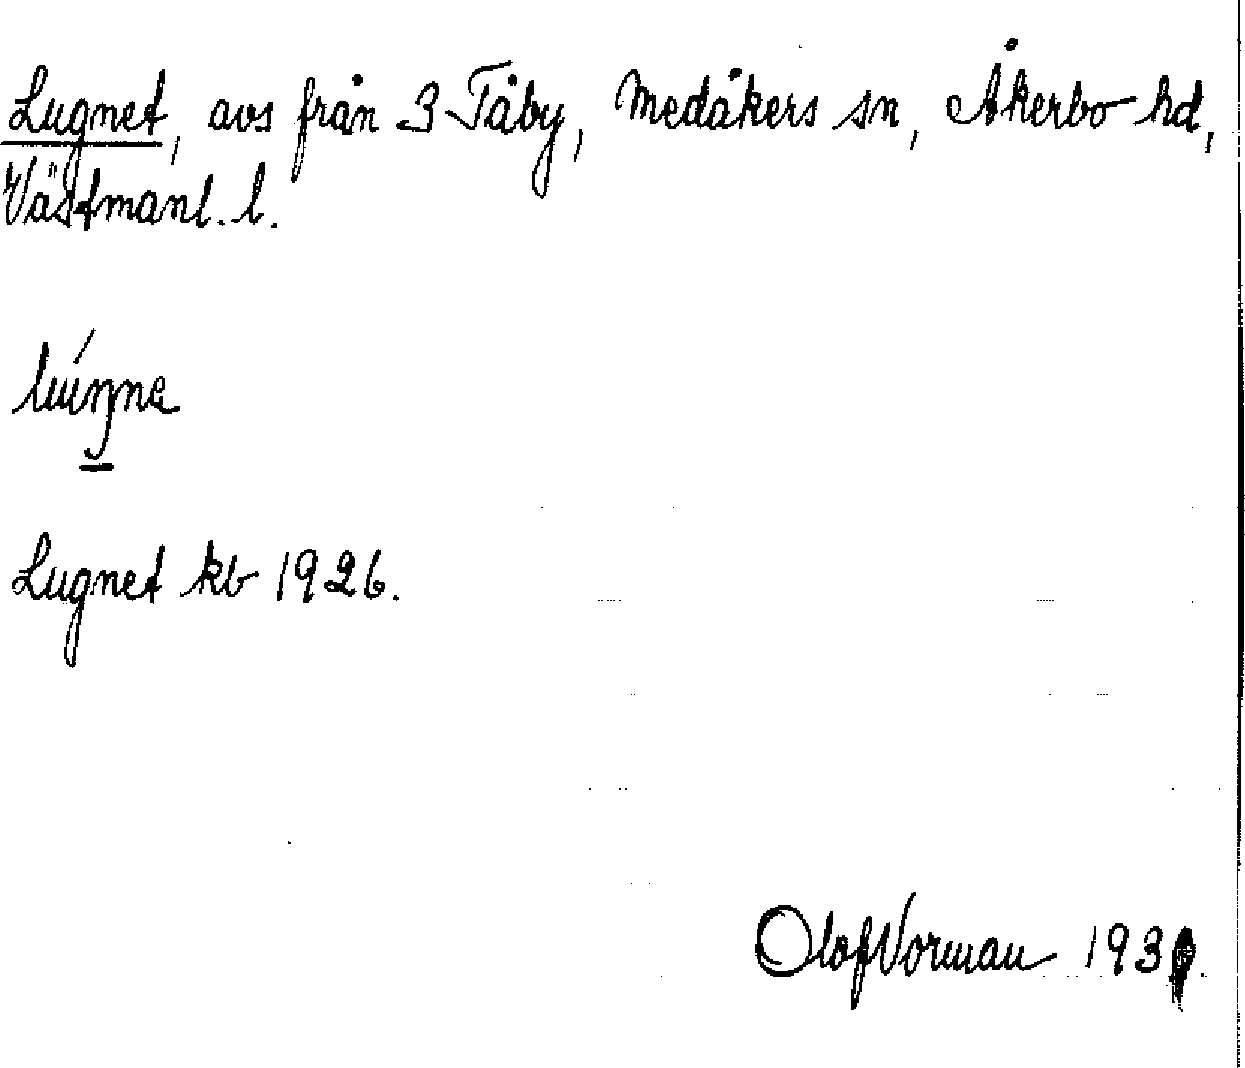 Lugnet, avs från 3 Tåby, Medåkers sn, Åkerbo hd,
Västmanl. l.
Lugnet kb 1926.
Olof Vorman